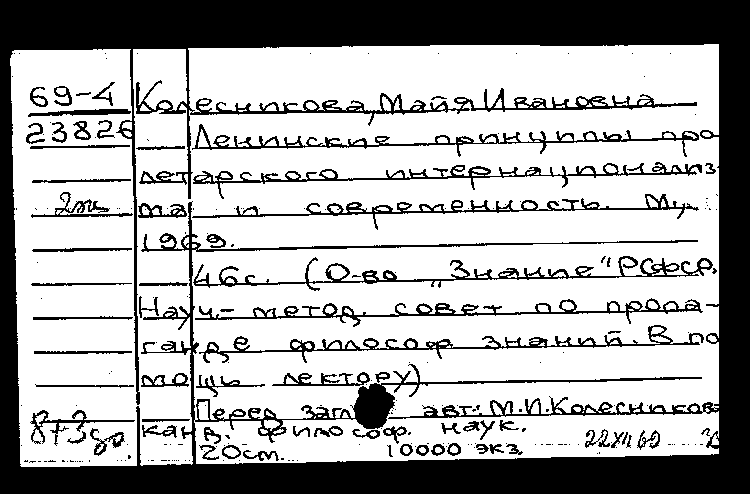 69-4 Колесникова, Майя Ивановна
23826 Ленинские принципы про
летарского интернационализ
ма и современность. М.,
1969.
46с. (О-во „Знание" РСФСР.
Науч.- метод. совет по пропа-
ганде философ знаний. В по
мощь лектору).
Перед загл авт.: М.И.Колесникова
канд. философ. наук.
20см. 10000 экз.